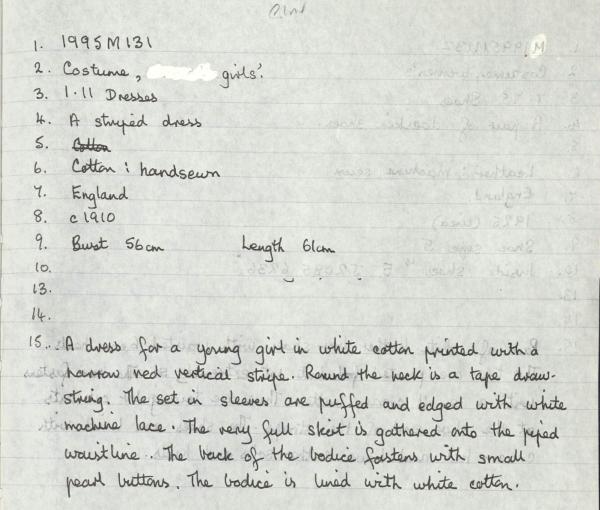 1. 1995M131
2. Costume, girls'.
3. 1.11 Dresses
4. A striped dress
5. Cotton
6. Cotton : handsewn
7. England
8. c1910
9. Bust 56cm Length 61cm
10.
13.
14.
15. A dress for a young girl in white cotton printed with a
narrow red vertical stripe. Round the neck is a tape draw-
string. The set in sleeves are puffed and edged with white
machine lace. The very full skirt is gathered onto the piped
waistline. The back of the bodice fastens with small
pearl buttons. The bodice is lined with white cotton.